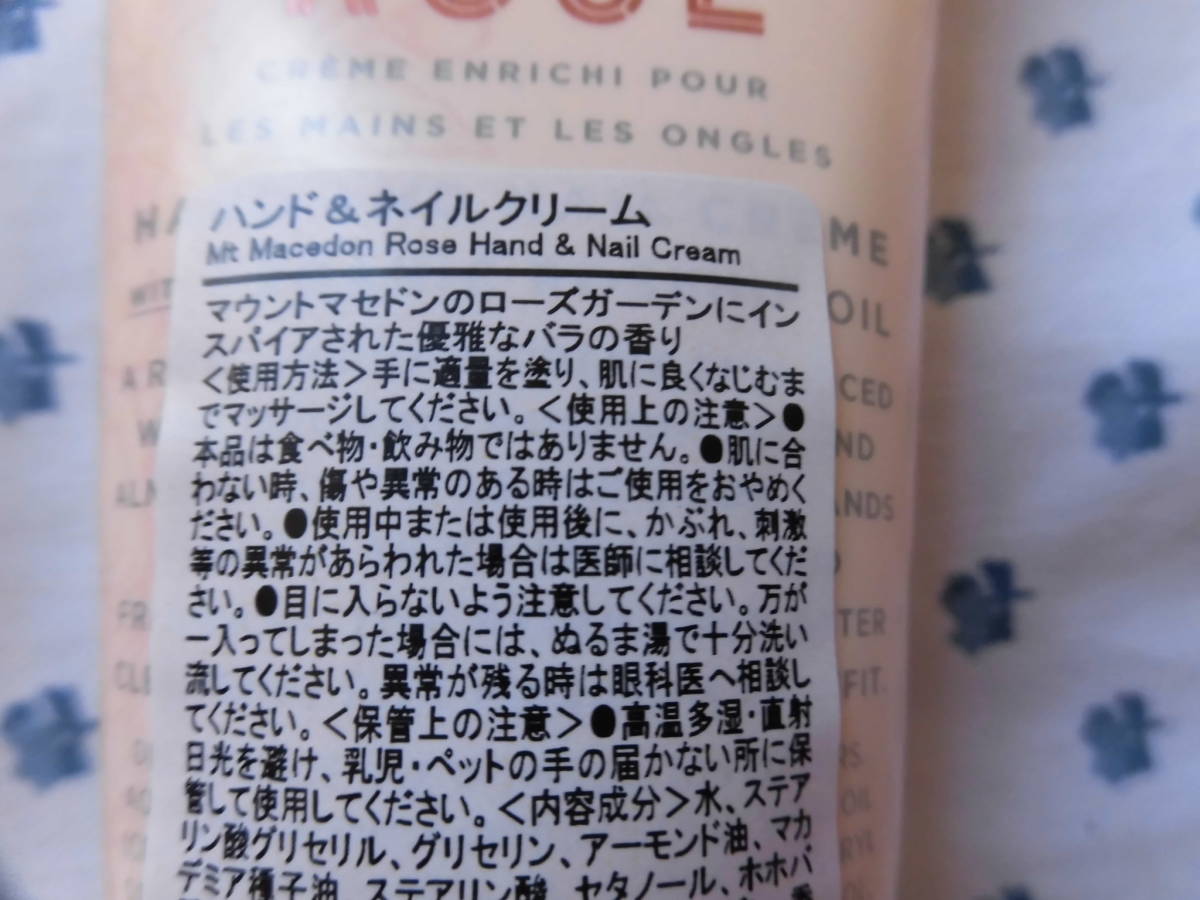 CRÈME ENRICHI POUR
LES MAINS ET LES ONGLES
ハンド＆ネイルクリーム
Mt Macedon Rose Hand & Nail Cream
マウントマセドンのローズガーデンにイン
スパイアされた優雅なバラの香り
＜使用方法＞手に適量を塗り、肌に良くなじむま
でマッサージしてください。＜使用上の注意＞●
本品は食べ物・飲み物ではありません。●肌に合
わない時、傷や異常のある時はご使用をおやめく
ださい。●使用中または使用後に、かぶれ、刺激
等の異常があらわれた場合は医師に相談してくだ
さい。●目に入らないよう注意してください。万が
一入ってしまった場合には、ぬるま湯で十分洗い
流してください。異常が残る時は眼科医へ相談し
てください。＜保管上の注意＞●高温多湿・直射
日光を避け、乳児・ペットの手の届かない所に保
管して使用してください。＜内容成分＞水、ステア
リン酸グリセリル、グリセリン、アーモンド油、マカ
デミア種子油、ステアリン酸、セタノール、ホホバ
OIL